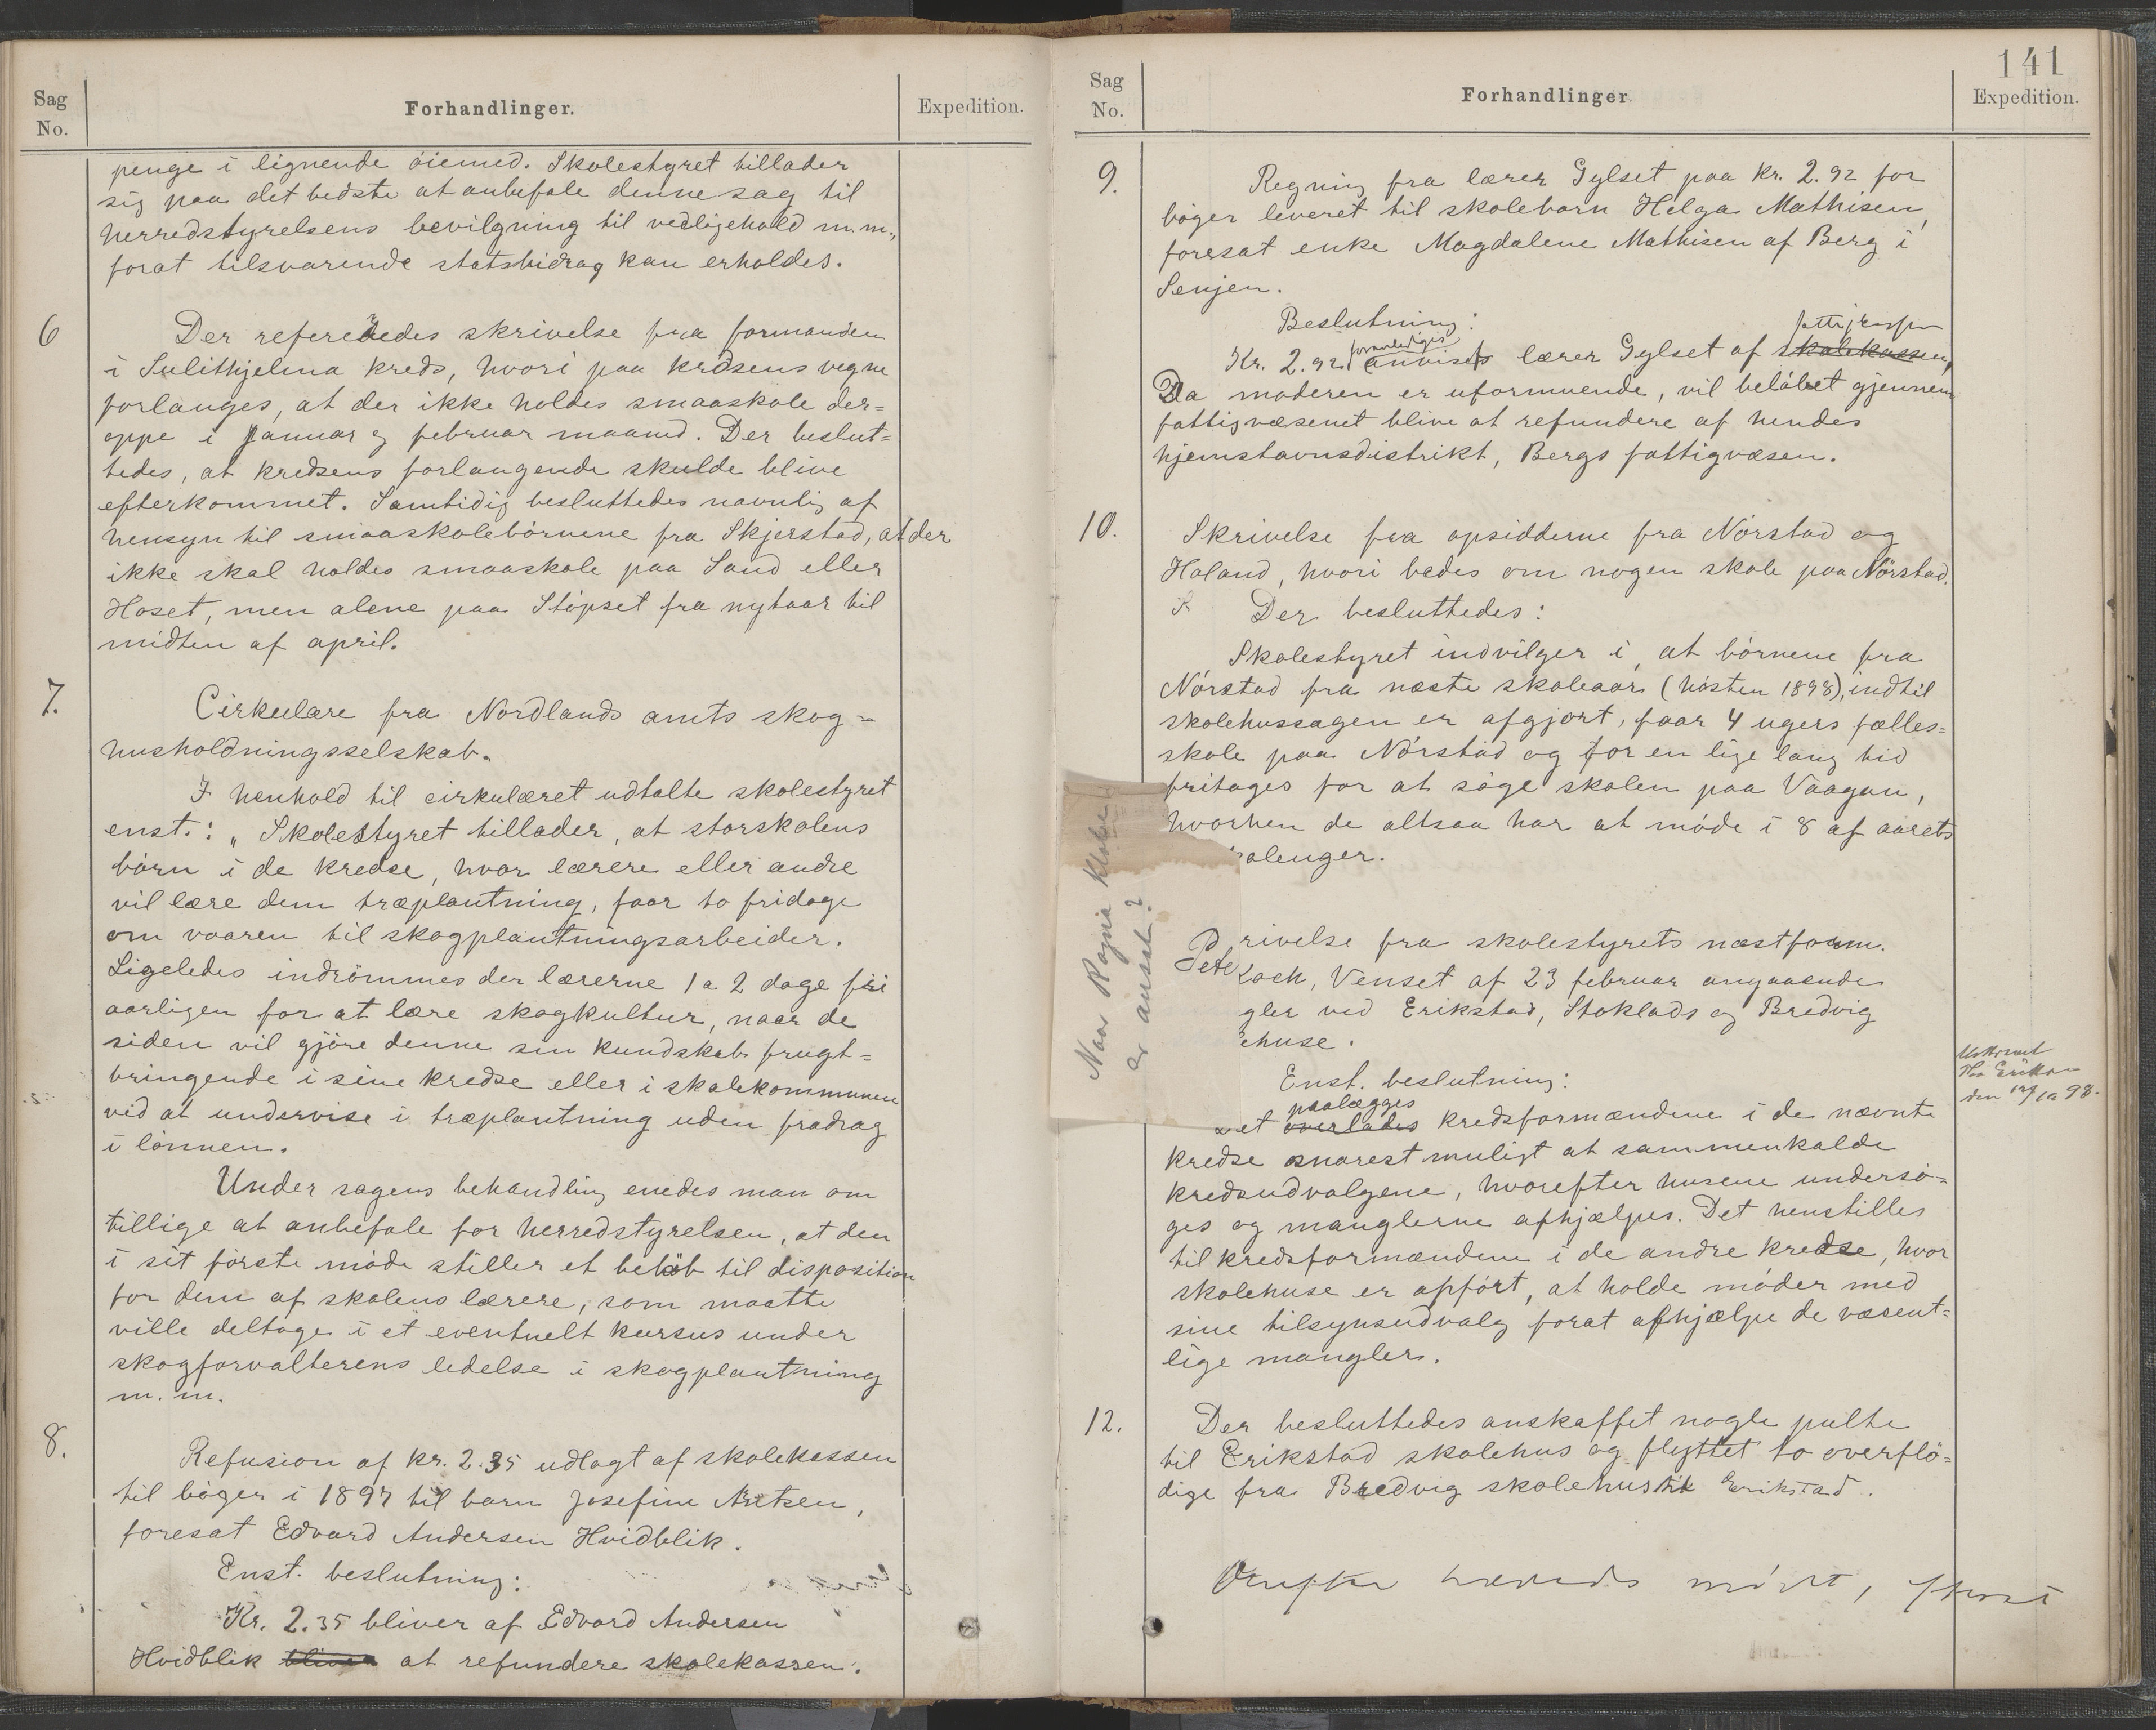 Sag
No.
Forhandlinger.
Expedition.
penge i lignende øiemed. Skolestyret tillader
sig paa det bedste at anbefale denne sag til
herredstyrelsens bevilgning til vedligehold m.m.,
forat tilsvarende statsbidrag kan erholdes.
6
Der refereredes skrivelse fra formanden
i Sulithjelma kreds, hvori paa kredsens vegne
forlanges, at der ikke holdes smaaskole der=
oppe i Januar og februar maaned. Der beslut=
tedes, at kredsens forlangende skulde blive
efterkommet. Samtidig besluttedes navnlig af
hensyn til smaaskolebørnene fra Skjerstad, at der
ikke skal holdes smaaskole paa Sand eller
Hoset, men alene paa Støpset fra nytaar til
midten af april.
7.
Cirkulære fra Nordlands amts skog-
husholdningsselskab.
I henhold til cirkulæret udtalte skolestyret
enst.: „Skolestyret tillader, at storskolens
børn i de kredse, hvor lærere eller andre
vil lære dem træplantning, faar to fridage
om vaaren til skogplantningsarbeider.
Ligeledes indrømmes der lærerne 1 a 2 dage fri
aarligen for at lære skogkultur, naar de
siden vil gjøre denne sin kundskab frugt=
bringende i sine kredse eller i skolekommunen
ved at undervise i træplantning uden fradrag
i lønnen.
Under sagens behandling enedes man om
tillige at anbefale for herredstyrelsen, at den
i sit første møde stiller et beløb til disposition
for dem af skolens lærere, som maatte
ville deltage i et eventuelt kursus under
skogforvalterens ledelse i skogplantning
m.m.
8.
Refusion af kr. 2.35 udlagt af skolekassen
til bøger i 1897 til barn Josefine Arntsen,
foresat Edvard Andersen Hvidblik.
Enst. beslutning:
Kr. 2.35 bliver af Edvard Andersen
Hvidblik bliver at refundere skolekassen.
141
Sag
No.
Forhandlinger
Expedition.
9.
Regning fra lærer Gylset paa kr. 2.92 for
bøger leveret til skolebarn Helga Mathisen,
foresat enke Magdalene Mathisen af Berg i
Senjen.
Beslutning:
forventliges
Kr. 2.92 anvises lærer Gylset af skolekassen,
Da moderen er uformuende, vil beløbet gjennem
fattigvæsenet blive at refundere af hendes
hjemstavnsdistrikt, Bergs fattigvæsen.
10.
Skrivelse fra opsidderne fra Nørstad og
Høland, hvori bedes om nogen skole paa Nørstad.
Der besluttedes:
Skolestyret indvilger i, at børnene fra
Nørstad fra næste skoleaar (høsten 1898), indtil
skolehussagen er afgjort, faar 4 ugers fælles=
skole paa Nørstad og for en lige lang tid
fritages for at søge skolen paa Vaagan,
hvorhen de altsaa har at møde i 8 af aarets
olenger.
Naar Ragna
er ansat?
rivelse fra skolestyrets næstform.
Pete Koch, Venset af 23 februar angaaende
gler ved Erikstad, Stoklads og Bredvig
ehuse.
Enst. beslutning:
paalægges
et overlades kredsformændene i de nævnte
kredse snarest muligt at sammenkalde
kredsudvalgene, hvorefter husene undersø=
ges og manglerne afhjælpes. Det henstilles
til kredsformændene i de andre kredse, hvor
skolehuse er opført, at holde møder med
sine tilsynsudvalg forat afhjælpe de væsent=
lige mangler.
12.
Der besluttedes anskaffet nogle pulte
til Erikstad skolehus og flyttet to overflø=
dige fra Bredvig skolehus til Erikstad.
hævedes mødet,